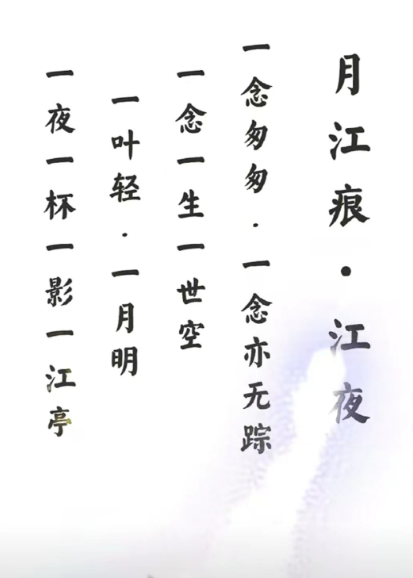 月江痕·江夜
一念匆匆·一念亦无踪
一念一生一世空
一叶轻·一月明
一夜一杯一影一江亭